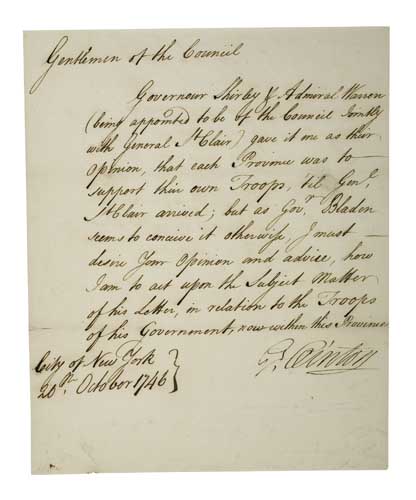 Gentlemen of the Council
Governour Shirley & Admiral Warren
(being appointed to be of the Council Jointly
with General St Clair) gave it me as their
Opinion, that each Province was to
support their own Troops, til Genl.
St Clair arrived; but as Govr. Bladen
seems to conceive it otherwise, I must
desire Your Opinion and advice, how
I am to act upon the Subject Matter
of his Letter, in relation to the Troops
of his Government, now within this Province
G. Clinton
City of New York
20th. October 1746